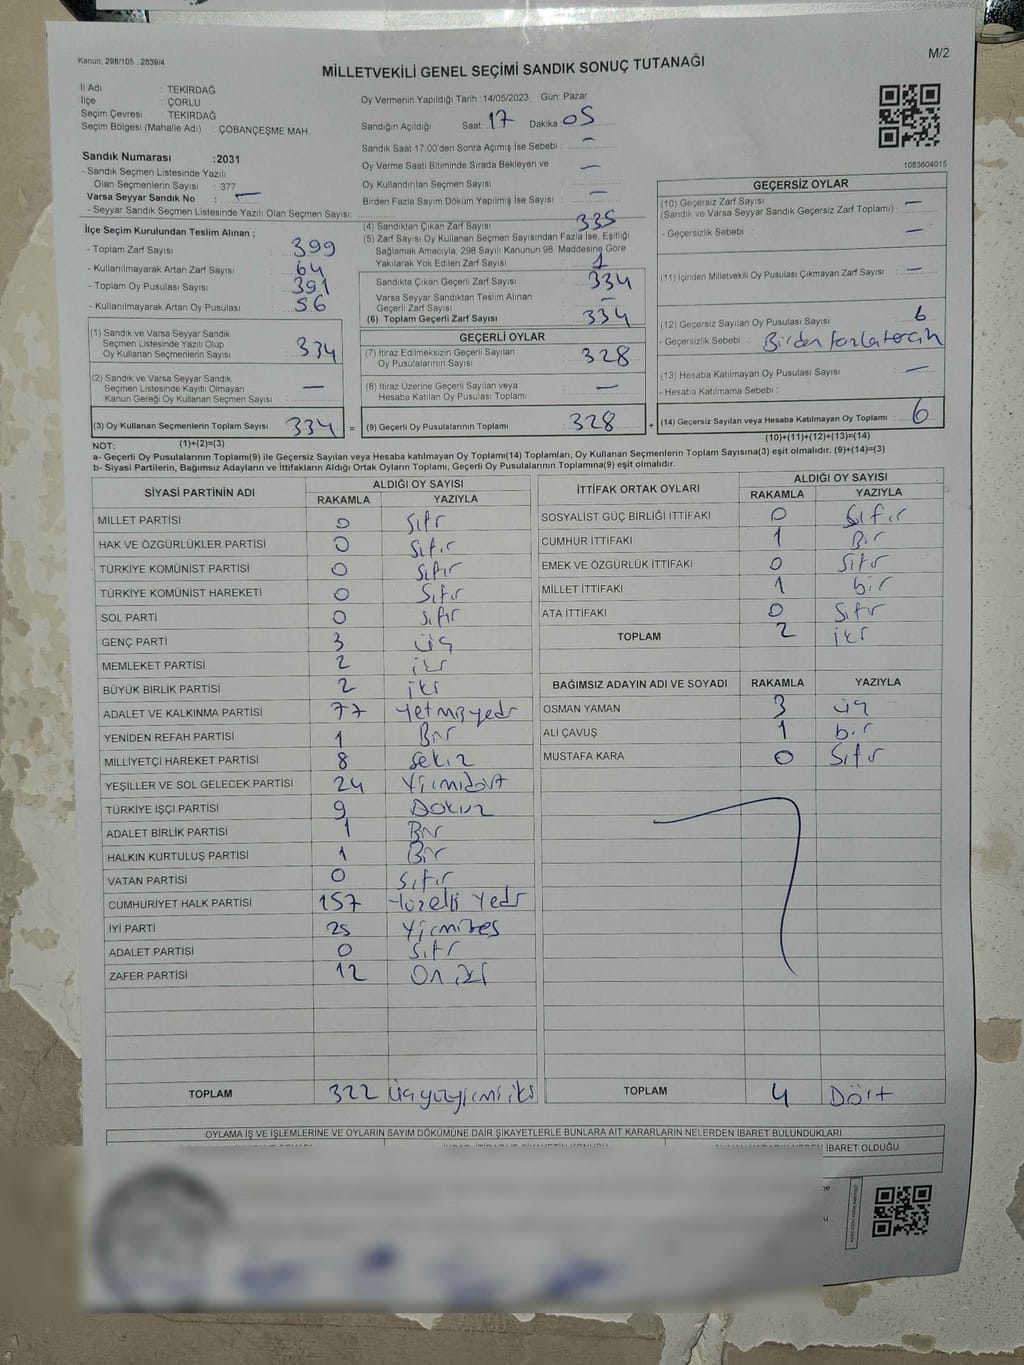 Kanun: 298/105 , 2839/4
M/2
MİLLETVEKİLİ GENEL SEÇİMİ SANDIK SONUÇ TUTANAĞI
İl Adı : TEKİRDAĞ
İlçe : ÇORLU
Seçim Çevresi : TEKİRDAĞ
Seçim Bölgesi (Mahalle Adı) : ÇOBANÇEŞME MAH.
Sandık Numarası :2031
- Sandık Seçmen Listesinde Yazılı
Olan Seçmenlerin Sayısı : 377
Varsa Seyyar Sandık No : —
- Seyyar Sandık Seçmen Listesinde Yazılı Olan Seçmen Sayısı:
Oy Vermenin Yapıldığı Tarih :14/05/2023 Gün: Pazar
Sandığın Açıldığı Saat: 17 Dakika 05
Sandık Saat 17:00'den Sonra Açılmış İse Sebebi : —
Oy Verme Saati Bitiminde Sırada Bekleyen ve —
Oy Kullandırılan Seçmen Sayısı
Birden Fazla Sayım Döküm Yapılmış İse Sayısı : —
1083604015
İlçe Seçim Kurulundan Teslim Alınan ;
- Toplam Zarf Sayısı : 399
- Kullanılmayarak Artan Zarf Sayısı : 64
- Toplam Oy Pusulası Sayısı : 391
- Kullanılmayarak Artan Oy Pusulası : 56
(1) Sandık ve Varsa Seyyar Sandık
Seçmen Listesinde Yazılı Olup
Oy Kullanan Seçmenlerin Sayısı : 334
(2) Sandık ve Varsa Seyyar Sandık
Seçmen Listesinde Kayıtlı Olmayan —
Kanun Gereği Oy Kullanan Seçmen Sayısı :
(3) Oy Kullanan Seçmenlerin Toplam Sayısı : 334 =
(4) Sandıktan Çıkan Zarf Sayısı : 335
(5) Zarf Sayısı Oy Kullanan Seçmen Sayısından Fazla İse, Eşitliği
Sağlamak Amacıyla, 298 Sayılı Kanunun 98. Maddesine Göre
Yakılarak Yok Edilen Zarf Sayısı : 1
Sandıkta Çıkan Geçerli Zarf Sayısı : 334
Varsa Seyyar Sandıktan Teslim Alınan
Geçerli Zarf Sayısı : —
(6) Toplam Geçerli Zarf Sayısı : 334
GEÇERLİ OYLAR
(7) İtiraz Edilmeksizin Geçerli Sayılan
Oy Pusulalarının Sayısı : 328
(8) İtiraz Üzerine Geçerli Sayılan veya
Hesaba Katılan Oy Pusulası Toplamı : —
(9) Geçerli Oy Pusulalarının Toplamı : 328 +
GEÇERSİZ OYLAR
(10) Geçersiz Zarf Sayısı
(Sandık ve Varsa Seyyar Sandık Geçersiz Zarf Toplamı) : —
- Geçersizlik Sebebi : —
(11) İçinden Milletvekili Oy Pusulası Çıkmayan Zarf Sayısı : —
(12) Geçersiz Sayılan Oy Pusulası Sayısı : 6
- Geçersizlik Sebebi : Birden fazla tercih
(13) Hesaba Katılmayan Oy Pusulası Sayısı : —
- Hesaba Katılmama Sebebi :
(14) Geçersiz Sayılan veya Hesaba Katılmayan Oy Toplamı : 6
NOT: (1)+(2)=(3) (10)+(11)+(12)+(13)=(14)
a- Geçerli Oy Pusulalarının Toplamı(9) ile Geçersiz Sayılan veya Hesaba katılmayan Oy Toplamı(14) Toplamları, Oy Kullanan Seçmenlerin Toplam Sayısına(3) eşit olmalıdır. (9)+(14)=(3)
b- Siyasi Partilerin, Bağımsız Adayların ve İttifakların Aldığı Ortak Oyların Toplamı, Geçerli Oy Pusulalarının Toplamına(9) eşit olmalıdır.
SİYASİ PARTİNİN ADI ALDIĞI OY SAYISI
RAKAMLA YAZIYLA
MİLLET PARTİSİ 0 Sıfır
HAK VE ÖZGÜRLÜKLER PARTİSİ 0 Sıfır
TÜRKİYE KOMÜNİST PARTİSİ 0 Sıfır
TÜRKİYE KOMÜNİST HAREKETİ 0 Sıfır
SOL PARTİ 0 Sıfır
GENÇ PARTİ 3 üç
MEMLEKET PARTİSİ 2 iki
BÜYÜK BİRLİK PARTİSİ 2 iki
ADALET VE KALKINMA PARTİSİ 77 Yetmişyedi
YENİDEN REFAH PARTİSİ 1 Bir
MİLLİYETÇİ HAREKET PARTİSİ 8 Sekiz
YEŞİLLER VE SOL GELECEK PARTİSİ 24 Yirmidört
TÜRKİYE İŞÇİ PARTİSİ 9 Dokuz
ADALET BİRLİK PARTİSİ 1 Bir
HALKIN KURTULUŞ PARTİSİ 1 Bir
VATAN PARTİSİ 0 Sıfır
CUMHURİYET HALK PARTİSİ 157 Yüzelli Yedi
İYİ PARTİ 25 Yirmibeş
ADALET PARTİSİ 0 Sıfır
ZAFER PARTİSİ 12 On iki
TOPLAM 322 üçyüzyirmi iki
İTTİFAK ORTAK OYLARI ALDIĞI OY SAYISI
RAKAMLA YAZIYLA
SOSYALİST GÜÇ BİRLİĞİ İTTİFAKI 0 Sıfır
CUMHUR İTTİFAKI 1 Bir
EMEK VE ÖZGÜRLÜK İTTİFAKI 0 Sıfır
MİLLET İTTİFAKI 1 bir
ATA İTTİFAKI 0 Sıfır
TOPLAM 2 iki
BAĞIMSIZ ADAYIN ADI VE SOYADI RAKAMLA YAZIYLA
OSMAN YAMAN 3 üç
ALİ ÇAVUŞ 1 bir
MUSTAFA KARA 0 Sıfır
TOPLAM 4 Dört
OYLAMA İŞ VE İŞLEMLERİNE VE OYLARIN SAYIM DÖKÜMÜNE DAİR ŞİKAYETLERLE BUNLARA AİT KARARLARIN NELERDEN İBARET BULUNDUKLARI
İBARET OLDUĞU